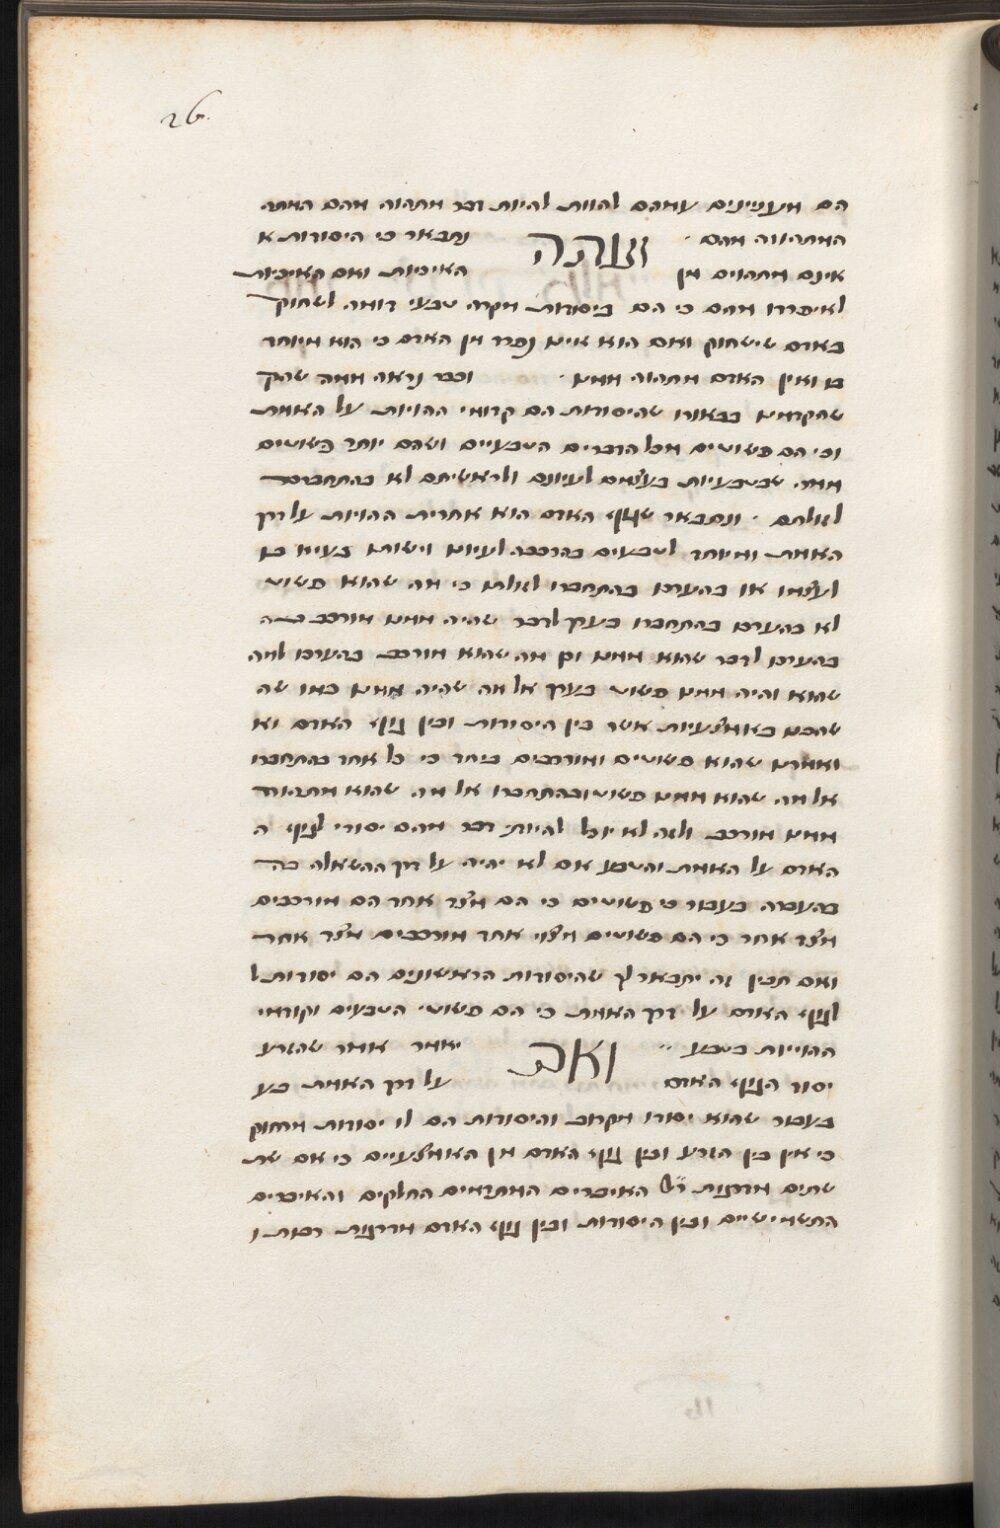 26
הם מעניינים עמהם להוות להיות דבר מתהוה מהם המתה
המתהווה מהם ועתה נתבאר כי היסודות א
אינם מתהוים מן האיכיות ואם האיכיות
לא יפרדו מהם כי הם ביסודות מקרה טבעי דומה לשחוק
באדם שישחוק ואם הוא אינו נפרד מן האדם כי הוא מיוחד
בו ואין האדם מתהוה ממנו וכבר נראה ממה שהק
שהקדמנו בבאורו שהיסודות הם קדומי ההויות על האמת
וכי הם פשוטים מכל הדברים הטבעיים ושהם יותר פשוטים
לזולתם ונתבאר שגוף האדם הוא אחרית ההויות על דרך
האמת ומיוחד לטבעים
לעצמו או בהערכו בהתחברו לזולתו כי מה שהוא פשוט
לא בהערכו בהתחברו בערך לדבר שהיה ממנו מורכב
בהערכו לדבר שהוא ממנו וכן מה שהוא מורכב בהערכו למה
שהוא והיה ממנו פשוט בערך אל מה שהיה ממנו כמו שה
שהבנו באמצעיות אשר בין היסודות ובין גוף האדם וא
ואמרנו שהוא פשוטים ומורכבים ביחד כי כל אחד בהתחברו
אל מה שהוא ממנו פשוט ובהתחברו אל מה שהוא מתהוה
ממנו מורכב ולזה לא יוכל להיות דבר מהם יסודי לגוף ה
האדם על האמת והטבע אם לא יהיה על דרך ההשאלה
בהעברה בעבור כי פשוטים כי הם מצד אחד הם מורכבים
מצד אחר כי הם פשוטים מצד אחד מורכבים מצד אחר
ואם תבין זה יתבאר לך שהיסודות הראשונים הם יסודות ל
לגוף האדם על דרך האמת כי הם פשוטי הטבעים וקודמי
ההוייות בטבע ואם יאמר אומר שהזרע
יסוד הגוף האדם על דרך האמת בע
בעבור שהוא יסודו הקרוב והיסודות הם לו יסודות מרחוק
כי אין בין הזרע ובין גוף האדם מן האמצעיים כי אם שת
שתים מדרגות האיברים המתדמים החלקים והאיברים
התשמישיים ובין היסודות ובין גוף האדם מדרגות רבות ו